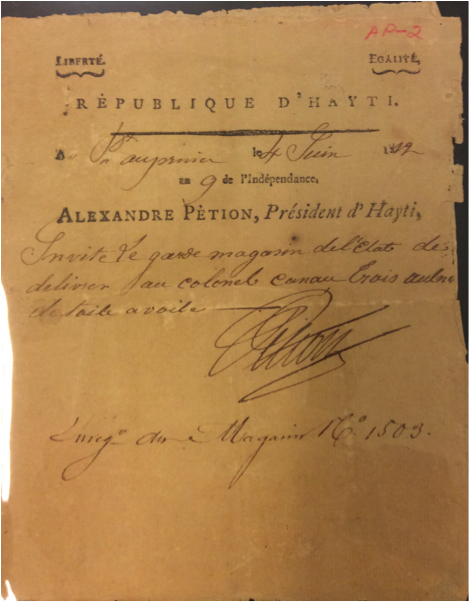 AP-2
LIBERTÉ. EGALITÉ,
RÉPUBLIQUE D'HAYTI.
A Pt auprince le 4 Juin 1812
an 9 de l'Indépendance,
ALEXANDRE PÉTION, Président d'Hayti,
Invite Le garde magasin de l'Etat de
delivrer au colonel trois aulne
de toile a voile
Petion
Enreg.º du Magasin Nº 1503.